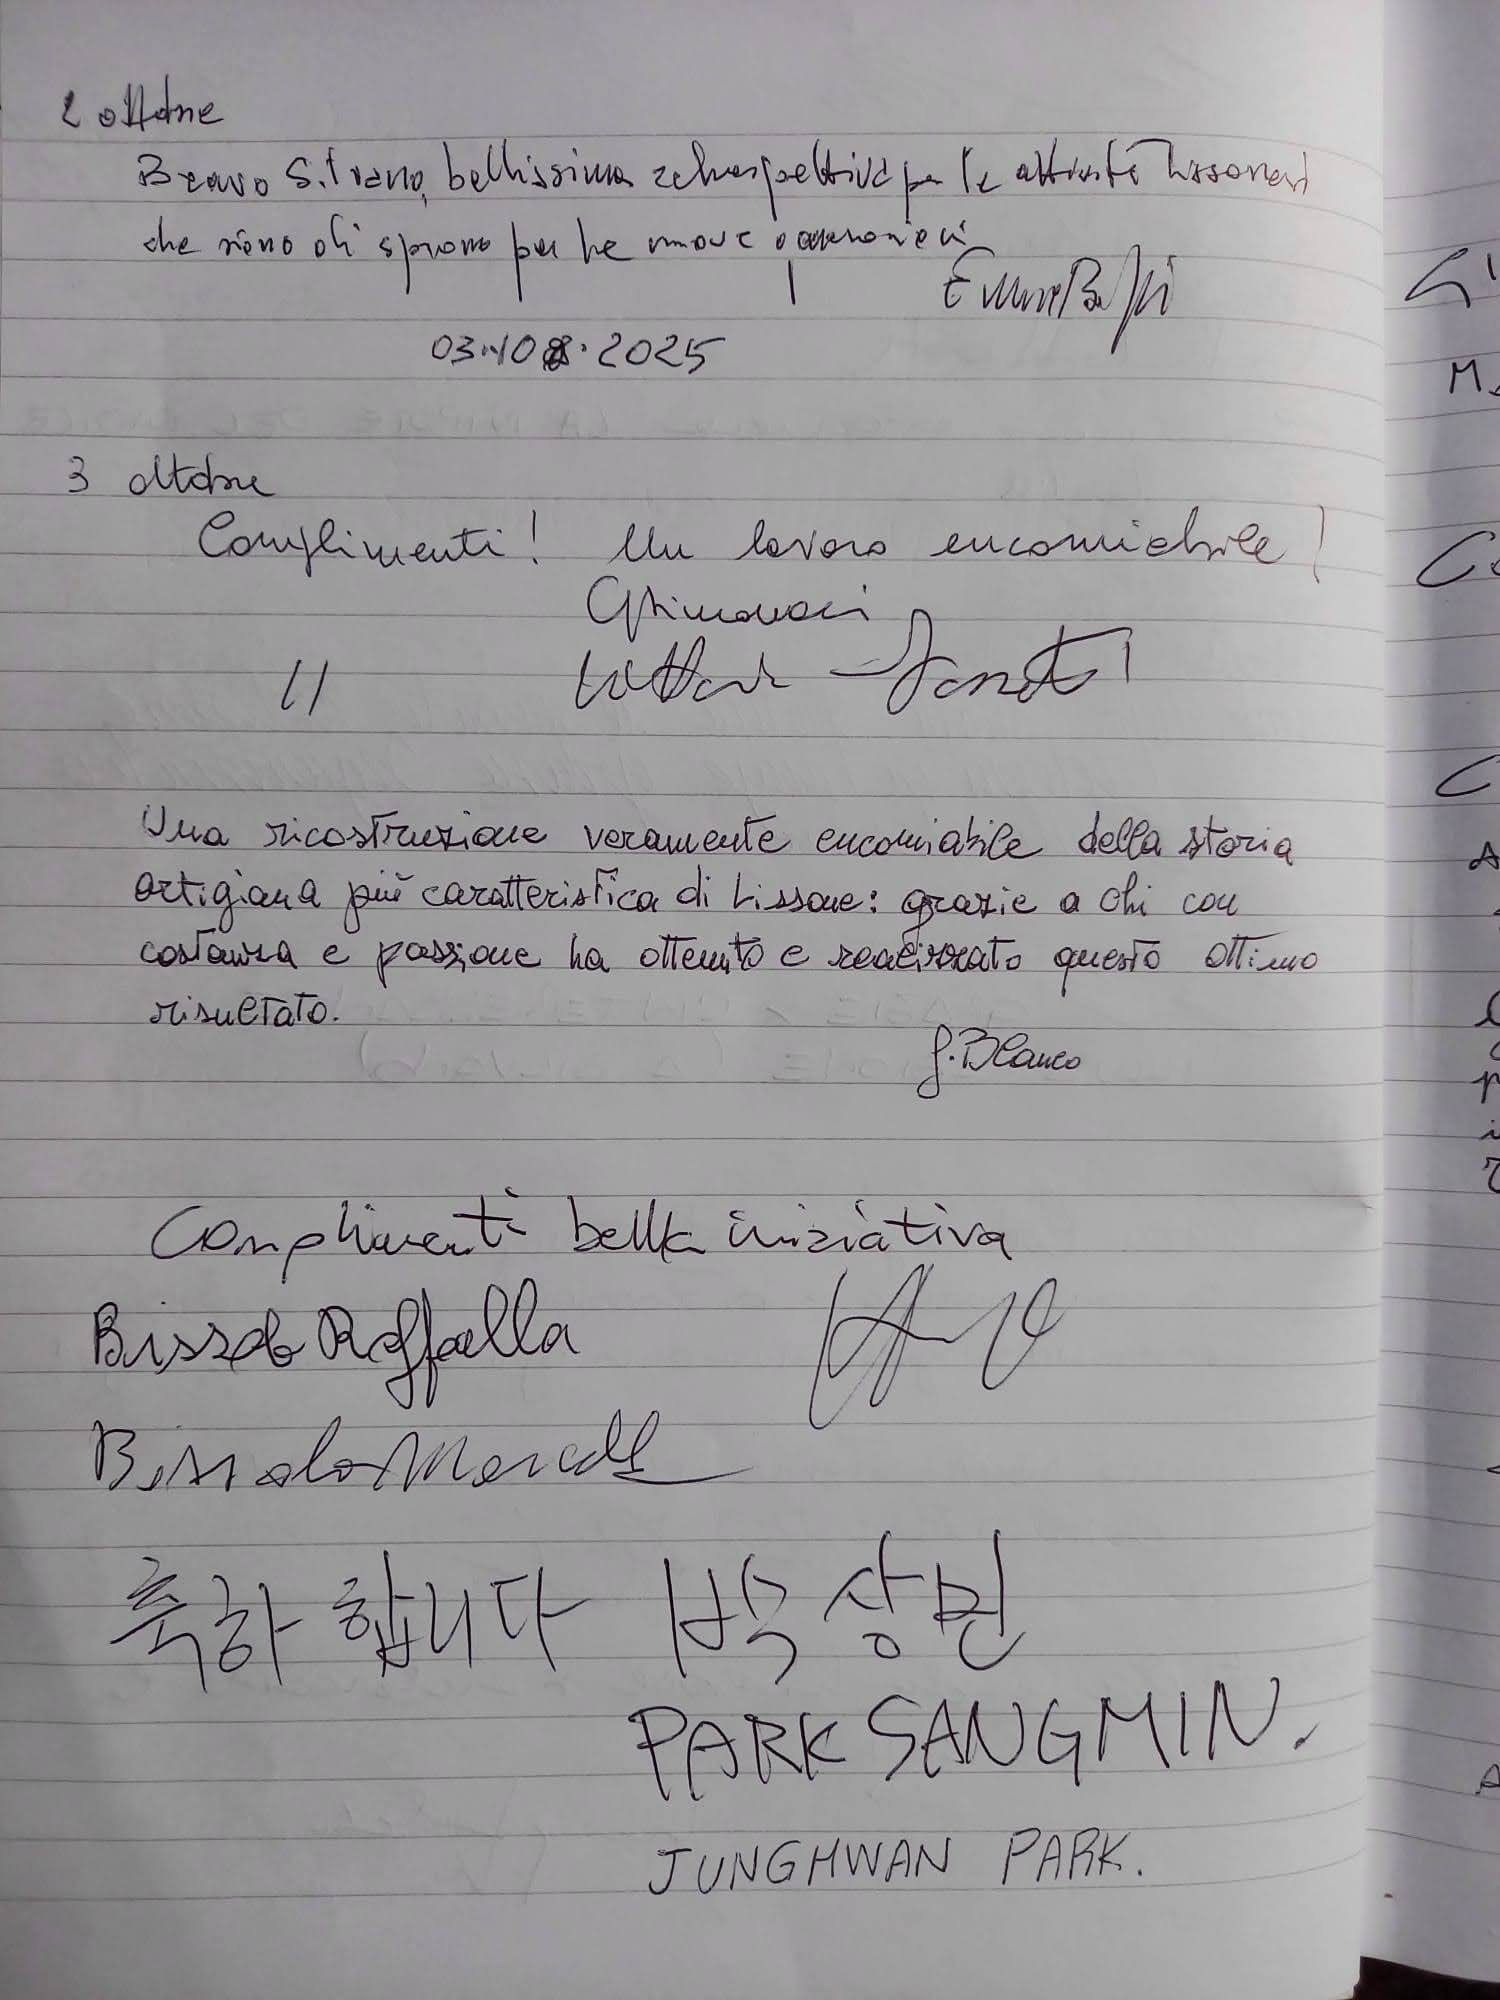 2 ottobre
Bravo Silvano, bellissima retrospettiva per le attività lissonesi
che siano di sprone per le nuove
03.10.2025
3 ottobre
Complimenti! Un lavoro encomiabile!
Una ricostruzione veramente encomiabile della storia
artigiana più caratteristica di Lissone: grazie a chi con
costanza e passione ha ottenuto e realizzato questo ottimo
risultato.
G. Blanco
Complimenti bella iniziativa
Bissolo Raffaella
Bissolo
축하합니다 박상민
PARK SANGMIN.
JUNGHWAN PARK.